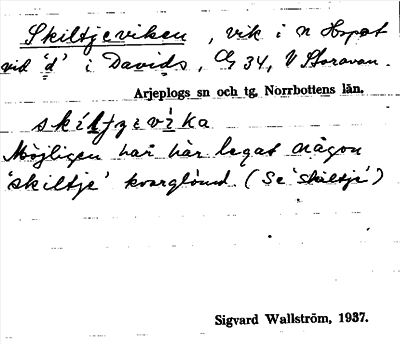 Skiltjeviken, vik i n Hopat
vid 'd' i Davids, G 34, V Storavan.
Arjeplogs sn och tg, Norrbottens län.
Möjligen har här legat någon
'skiltje' kvarglömd. (Se 'skiltje')
Sigvard Wallström, 1937.